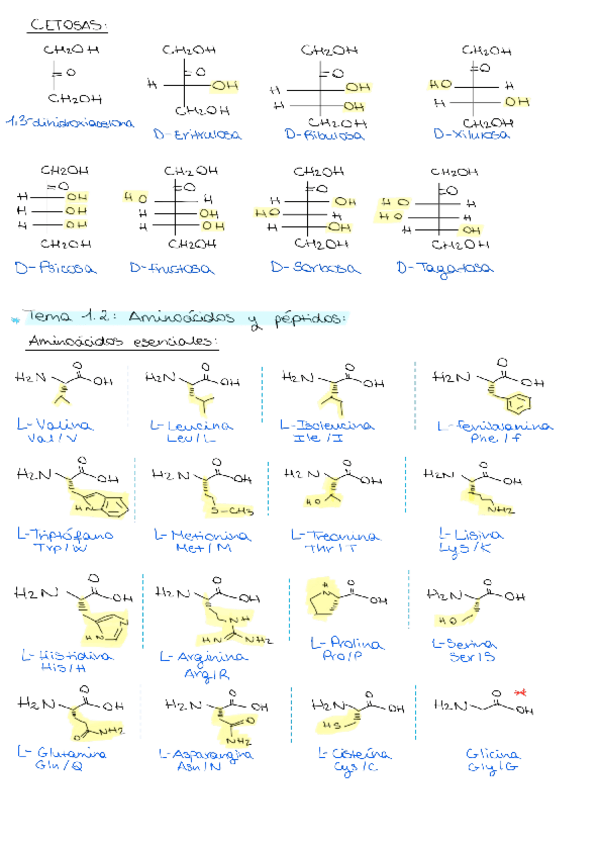 CETOSAS:
CH2OH CH2OH CH2OH CH2OH
=O =O =O =O
H OH H OH HO H
H OH H OH
CH2OH CH2OH CH2OH CH2OH
1,3-dihidroxiacetona D-Eritrulosa D-Ribulosa D-Xilulosa
CH2OH CH2OH CH2OH CH2OH
=O =O =O =O
H OH HO H H OH HO H
H OH H OH HO H HO H
H OH H OH H OH H OH
CH2OH CH2OH CH2OH CH2OH
D-Psicosa D-Fructosa D-Sorbosa D-Tagatosa
Tema 1.2: Aminoácidos y péptidos:
Aminoácidos esenciales:
O O O O
H2N OH H2N OH H2N OH H2N OH
L-Valina L-Leucina L-Isoleucina L-fenilalanina
Val/V Leu/L Ile/I Phe/f
O O O O
H2N OH H2N OH H2N OH H2N OH
HN S-CH3 HO NH2
L-Triptófano L-Metionina L-Treonina L-Lisina
Trp/W Met/M Thr/T Lys/K
O O O O
H2N OH H2N OH HN OH H2N OH
N HN NH HN NH2 HO
L-Histidina L-Arginina L-Prolina L-Serina
His/H Arg/R Pro/P Ser/S
O O O O
H2N OH H2N OH H2N OH H2N OH
O NH2 O NH2 HS
L-Glutamina L-Asparangina L-Cisteína Glicina
Gln/Q Asn/N Cys/C Gly/G